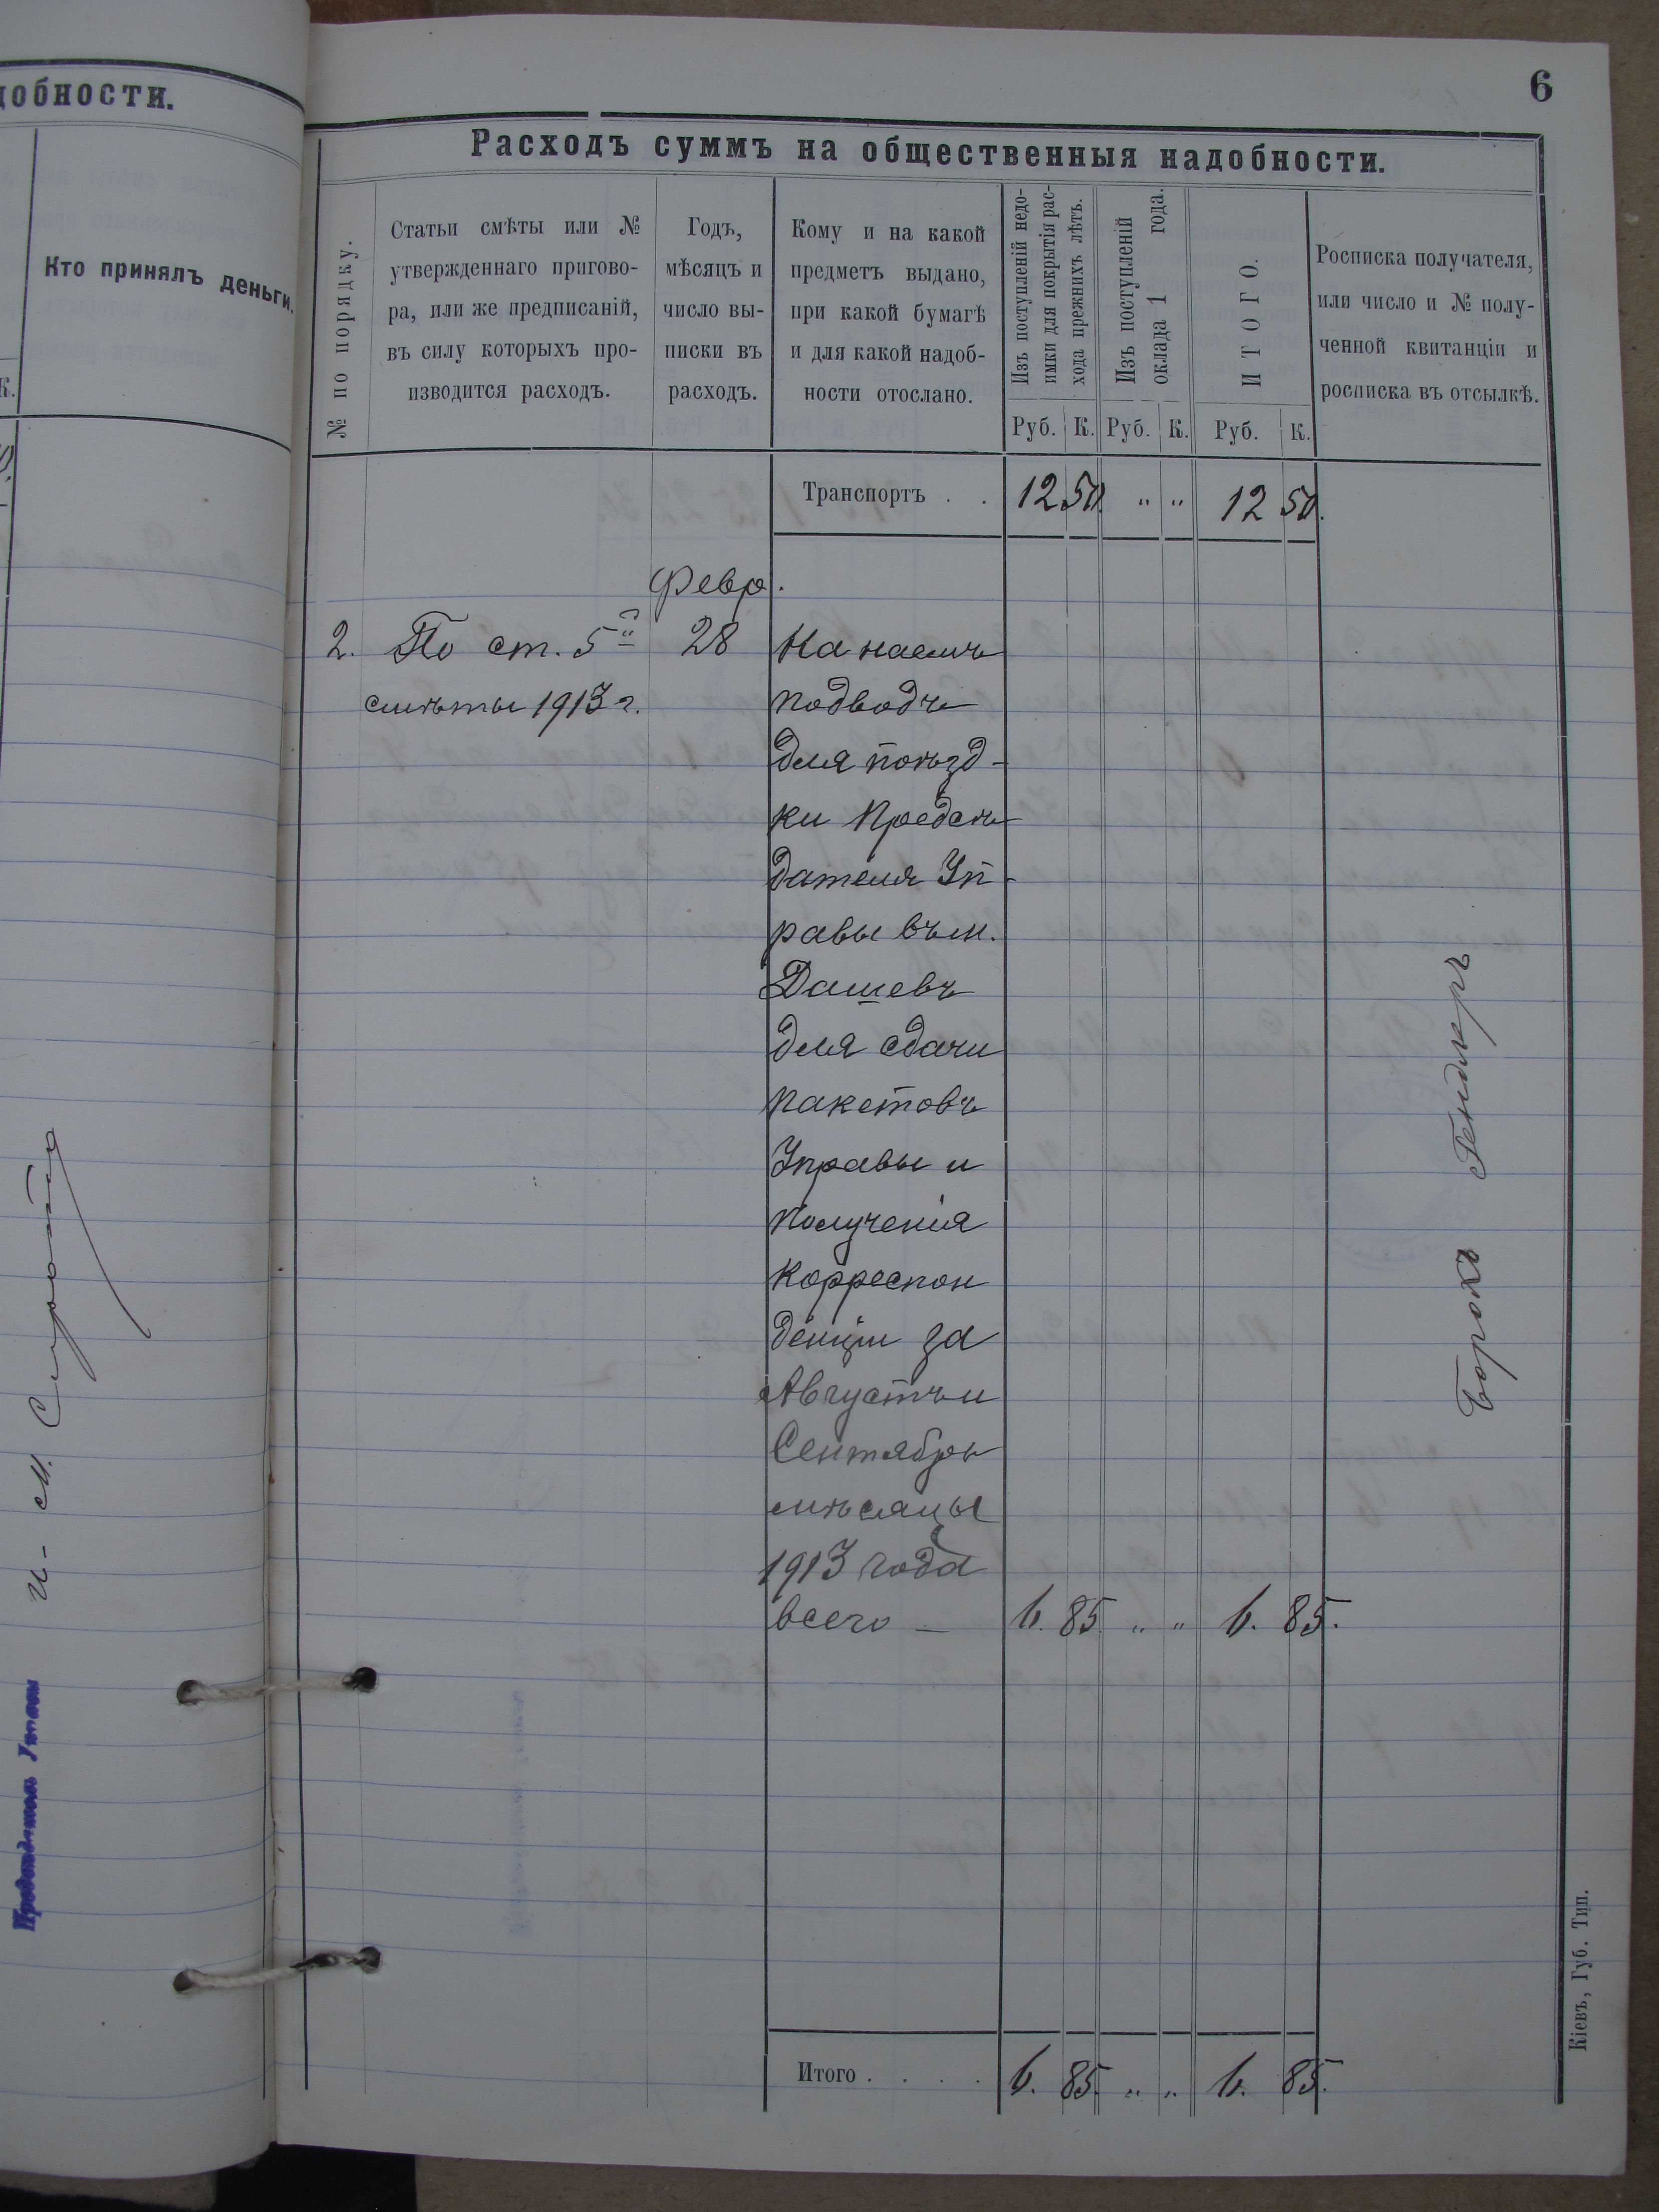 добности.
Кто принялъ деньги.
К.
И. М.
6
Расходъ суммъ на общественныя надобности.
№ по порядку.
Статьи смѣты или №
утвержденнаго пригово-
ра, или же предписаній,
въ силу которыхъ про-
изводится расходъ.
Годъ,
мѣсяцъ и
число вы-
писки въ
расходъ.
Кому и на какой
предметъ выдано,
при какой бумагѣ
и для какой надоб-
ности отослано.
Изъ поступленій недо-
имки для покрытія рас-
хода прежнихъ лѣтъ.
Изъ поступленій
оклада 1 года.
ИТОГО.
Росписка получателя,
или число и № полу-
ченной квитанціи и
росписка въ отсылкѣ.
Руб. К. Руб. К. Руб. К.
Транспортъ . . 12 50. " " 12 50.
Февр.
2. По ст. 5й 28 На наемъ
смѣты 1913 г. подводъ
для поѣзд-
ки Предсѣ
дателя Уп-
равы въ м.
Дашевъ
для сдачи
пакетовъ
Управы и
полученія
корреспон
денціи за
Августъ и
Сентябрь
мѣсяцы
1913 года
всего — 6. 85. " " 6. 85.
Борохъ Гендлеръ
Итого . . . . 6. 85. " " 6. 85.
Кіевъ, Губ. Тип.